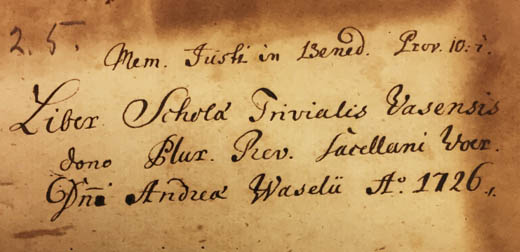 2. 5.
Mem. Justi in Bened. Prov. 10: 7.
Liber Scholæ Trivialis Vasensis
dono Plur. Rev. Sacellani Voer.
Dn̄i Andreæ Waselii Aº 1726.